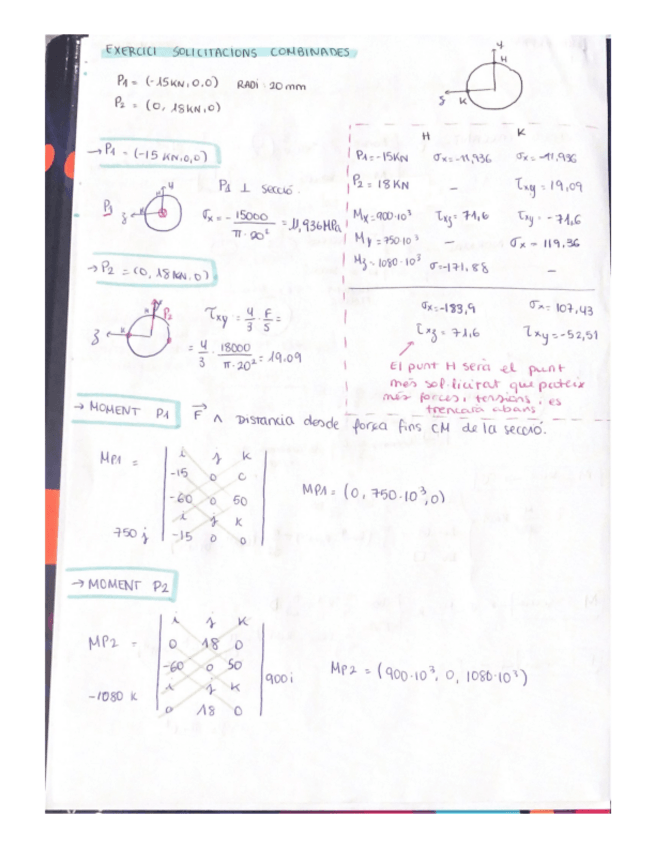 EXERCICI SOLICITACIONS COMBINADES
P1 = (-15KN, 0, 0) RADI: 20mm
P2 = (0, 18KN, 0)
y
H
z
K
→ P1 = (-15 KN, 0, 0)
P1 ⊥ SECCIÓ.
P1
y
H
z
σx = - 15000 / π·20² = 11,936MPa
→ P2 = (0, 18KN, 0)
y
P2
z
K
τxy = 4/3 · F/S =
= 4/3 · 18000 / π·20² = 19,09
H K
P1 = -15KN σx = -11,936 σx = -11,936
P2 = 18KN — τxy = 19,09
Mx = 900·10³ τxz = 71,6 τxy = -71,6
My = 750·10³ — σx = 119,36
Mz = 1080·10³ σ = -171,88 —
σx = -183,9 σx = 107,43
τxz = 71,6 τxy = -52,51
El punt H serà el punt
més sol·licitat que pateix
més forces i tensions i es
trencarà abans
→ MOMENT P1 F ∧ DISTANCIA desde força fins CM de la SECCIÓ.
MP1 =
i j K
-15 0 0
-60 0 50
i j K
-15 0 0
750 j
MP1 = (0, 750·10³, 0)
→ MOMENT P2
MP2 =
i j K
0 18 0
-60 0 50
i j K
0 18 0
900 i
-1080 K
MP2 = (900·10³, 0, 1080·10³)